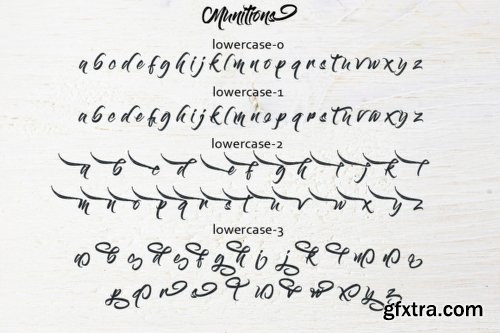 Munitions
lowercase-0
a b c d e f g h i j k l m n o p q r s t u v w x y z
lowercase-1
a b c d e f g h i j k l m n o p q r s t u v w x y z
lowercase-2
a b c d e f g h i j k l
m n o p q r s t u v w x y z
lowercase-3
a b c d e f g h i j k l m n o
p q r s t u v w x y z
gfxtra.com